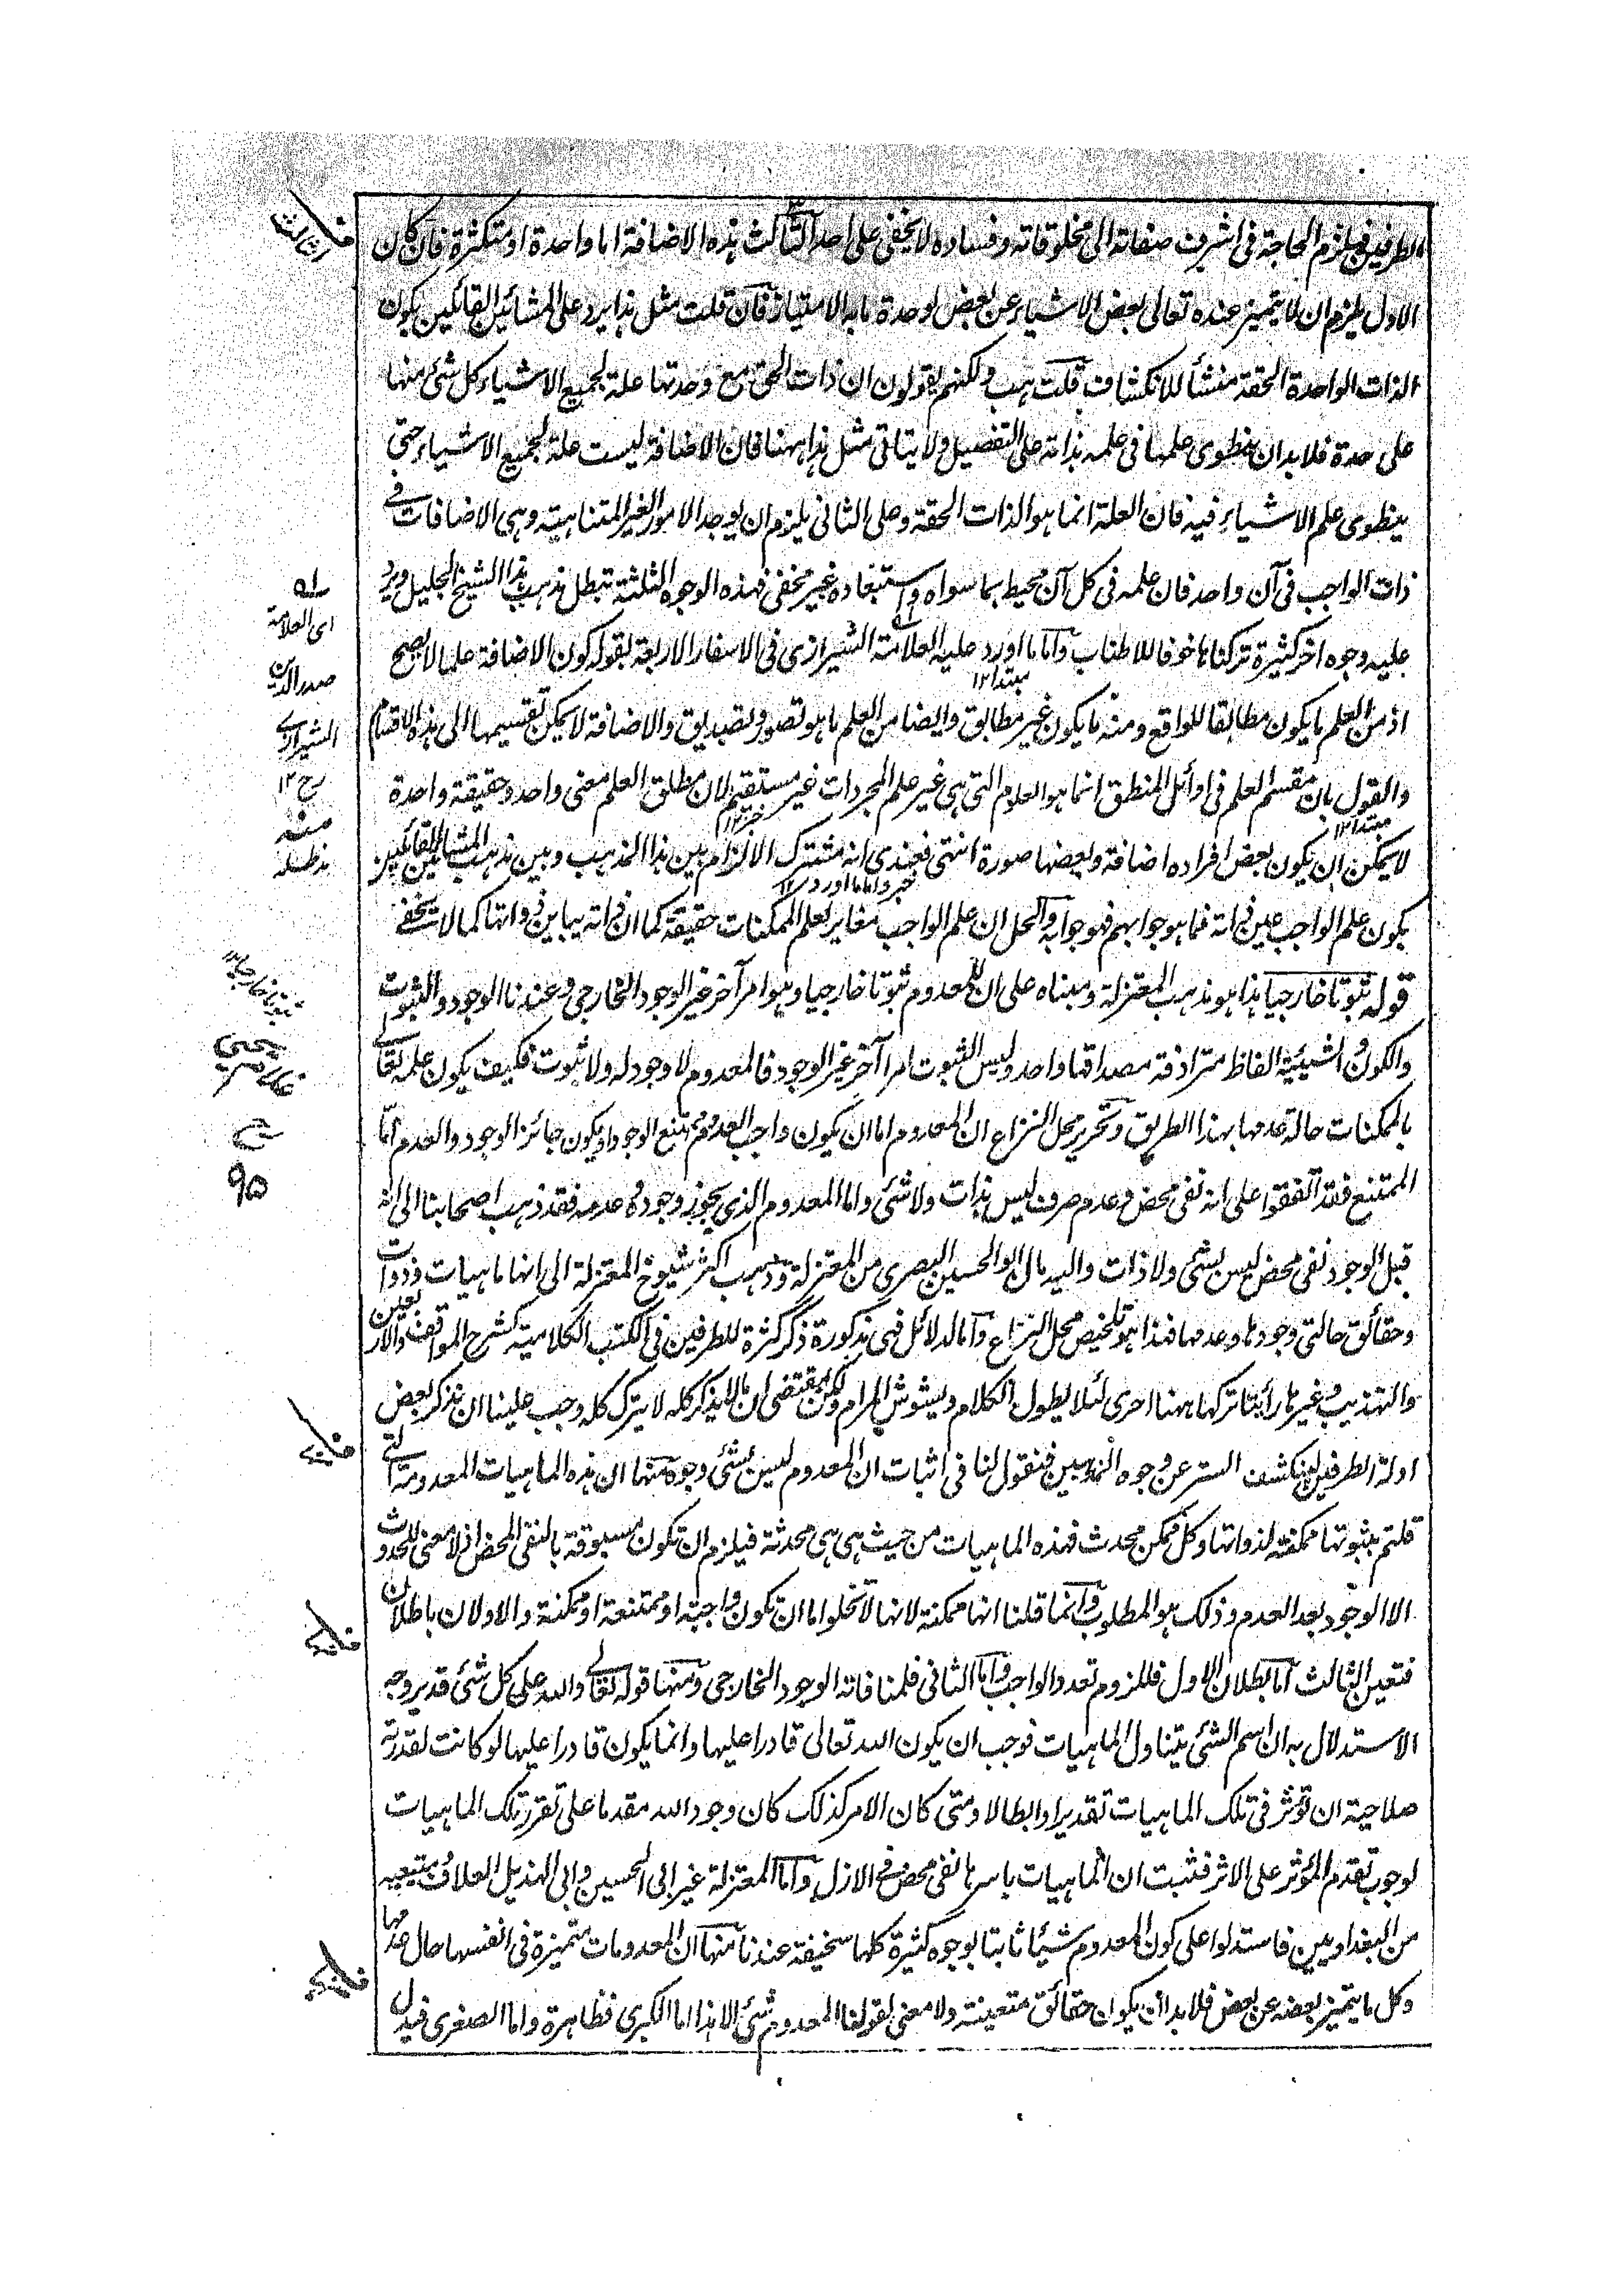 الطرفين فيلزم الحاجة فى اشرف صفاته الى مخلوقاته وفساده لا يخفى على احد الثالث هذه الاضافة اما واحدة او متكثرة فان كان
الاول يلزم ان لا يتميز عنده تعالى بعض الاشياء عن بعض لوحدة ما به الامتياز فان قلت مثل هذا يرد على المشائين القائلين بكون
الذات الواحدة الحقة منشأ للانكشاف قلت هب ولكنهم يقولون ان ذات الحق مع وحدتها علة لجميع الاشياء كل شئ منها
على حدة فلا بد ان ينطوى علمها فى علمه بذاته على التفصيل ولا يتاتى مثل هذا ههنا فان الاضافة ليست علة لجميع الاشياء حتى
ينطوى علم الاشياء فيه فان العلة انما هو الذات الحقة وعلى الثانى يلزم ان يوجد الامور الغير المتناهية وهى الاضافات فى
ذات الواجب فى آن واحد فان علمه فى كل آن محيط بما سواه واستبعاده غير مخفى فهذه الوجوه الثلثة تبطل مذهب هذا الشيخ الجليل ويرد
عليه وجوه اخر كثيرة تركناها خوفا للاطناب واما ما اورد عليه العلامة الشيرازى فى الاسفار الاربعة بقوله كون الاضافة علما لا يصح
مبتدا ١٢
اذ من العلم ما يكون مطابقا للواقع ومنه ما يكون غير مطابق وايضا من العلم ما هو تصور وتصديق والاضافة لا يمكن تقسيمها الى هذه الاقسام
والقول بان مقسم العلم فى اوائل المنطق انما هو العلوم التى هى غير علم المجردات غير مستقيم لان مطلق العلم معنى واحد وحقيقة واحدة
مبتدا ١٢
خبر ١٢
لا يمكن ان يكون بعض افراده اضافة وبعضها صورة انتهى فعندى انه مشترك الالزام بين هذا المذهب وبين مذهب المشائين القائلين
خبر واما ما اورد ١٢
بكون علم الواجب عين ذاته فما هو جوابهم فهو جوابه والحل ان علم الواجب مغاير لعلم الممكنات حقيقة كما ان ذاته يباين ذواتها كما لا يخفى
قوله ثبوتا خارجيا هذا هو مذهب المعتزلة ومبناه على ان للمعدوم ثبوتا خارجيا وهو امر آخر غير الوجود الخارجى وعندنا الوجود والثبوت
والكون والشيئية الفاظ مترادفة مصداقها واحد وليس الثبوت امرا آخر غير الوجود فالمعدوم لا وجود له ولا ثبوت فكيف يكون علمه تعالى
بالممكنات حالة عدمها بهذا الطريق وتحرير محل النزاع ان المعدوم اما ان يكون واجب العدم ممتنع الوجود او يكون جائز الوجود والعدم اما
الممتنع فقد اتفقوا على انه نفى محض وعدم صرف ليس بذات ولا شئ واما المعدوم الذى يجوز وجوده وعدمه فقد ذهب اصحابنا الى انه
قبل الوجود نفى محض ليس بشئ ولا ذات واليه مال ابو الحسين البصرى من المعتزلة وذهب اكثر شيوخ المعتزلة الى انها ماهيات وذوات
وحقائق حالتى وجودها وعدمها فهذا هو تلخيص محل النزاع واما الدلائل فهى مذكورة ذكر كثرة للطرفين فى الكتب الكلامية كشرح المواقف والاربعين
والتهذيب وغيرها رأيتا تركها ههنا احرى لئلا يطول الكلام ويشوش المرام ولكن بمقتضى ان ما لا يذكر كله لا يترك كله وجب علينا ان نذكر بعض
ادلة الطرفين لينكشف الستر عن وجوه المذهبين فنقول لنا فى اثبات ان المعدوم ليس بشئ وجوه منها ان هذه الماهيات المعدومة التى
قلتم بثبوتها ممكنة لذواتها وكل ممكن محدث فهذه الماهيات من حيث هى هى محدثة فيلزم ان تكون مسبوقة بالنفى المحض اذ لا معنى للحدوث
الا الوجود بعد العدم وذلك هو المطلوب وانما قلنا انها ممكنة لانها لا تخلوا اما ان تكون واجبة او ممتنعة او ممكنة والاولان باطلان
فتعين الثالث اما بطلان الاول فللزوم تعدد الواجب واما الثانى فلمنافاته الوجود الخارجى ومنها قوله تعالى والله على كل شئ قدير وجه
الاستدلال به ان اسم الشئ يتناول الماهيات فوجب ان يكون الله تعالى قادرا عليها وانما يكون قادرا عليها لو كانت لقدرته
صلاحية ان تؤثر فى تلك الماهيات تقديرا وابطالا ومتى كان الامر كذلك كان وجود الله مقدما على تقرر تلك الماهيات
لوجوب تقدم المؤثر على الاثر فثبت ان الماهيات باسرها نفى محض فى الازل واما المعتزلة غير ابى الحسين وابى الهذيل العلاف ومتبعيه
من البغداديين فاستدلوا على كون المعدوم شيئا ثابتا بوجوه كثيرة كلها سخيفة عندنا منها ان المعدومات متميزة فى انفسها حال عدمها
وكل ما يتميز بعضه عن بعض فلا بد ان يكون حقائق متعينة ولا معنى لقولنا المعدوم شئ الا هذا اما الكبرى فظاهرة واما الصغرى فيدل
اى العلامة
صدر الدين
الشيرازى
رح ١٢
منه
مدظله
ثبوتا خارجيا ١٢
٩٥